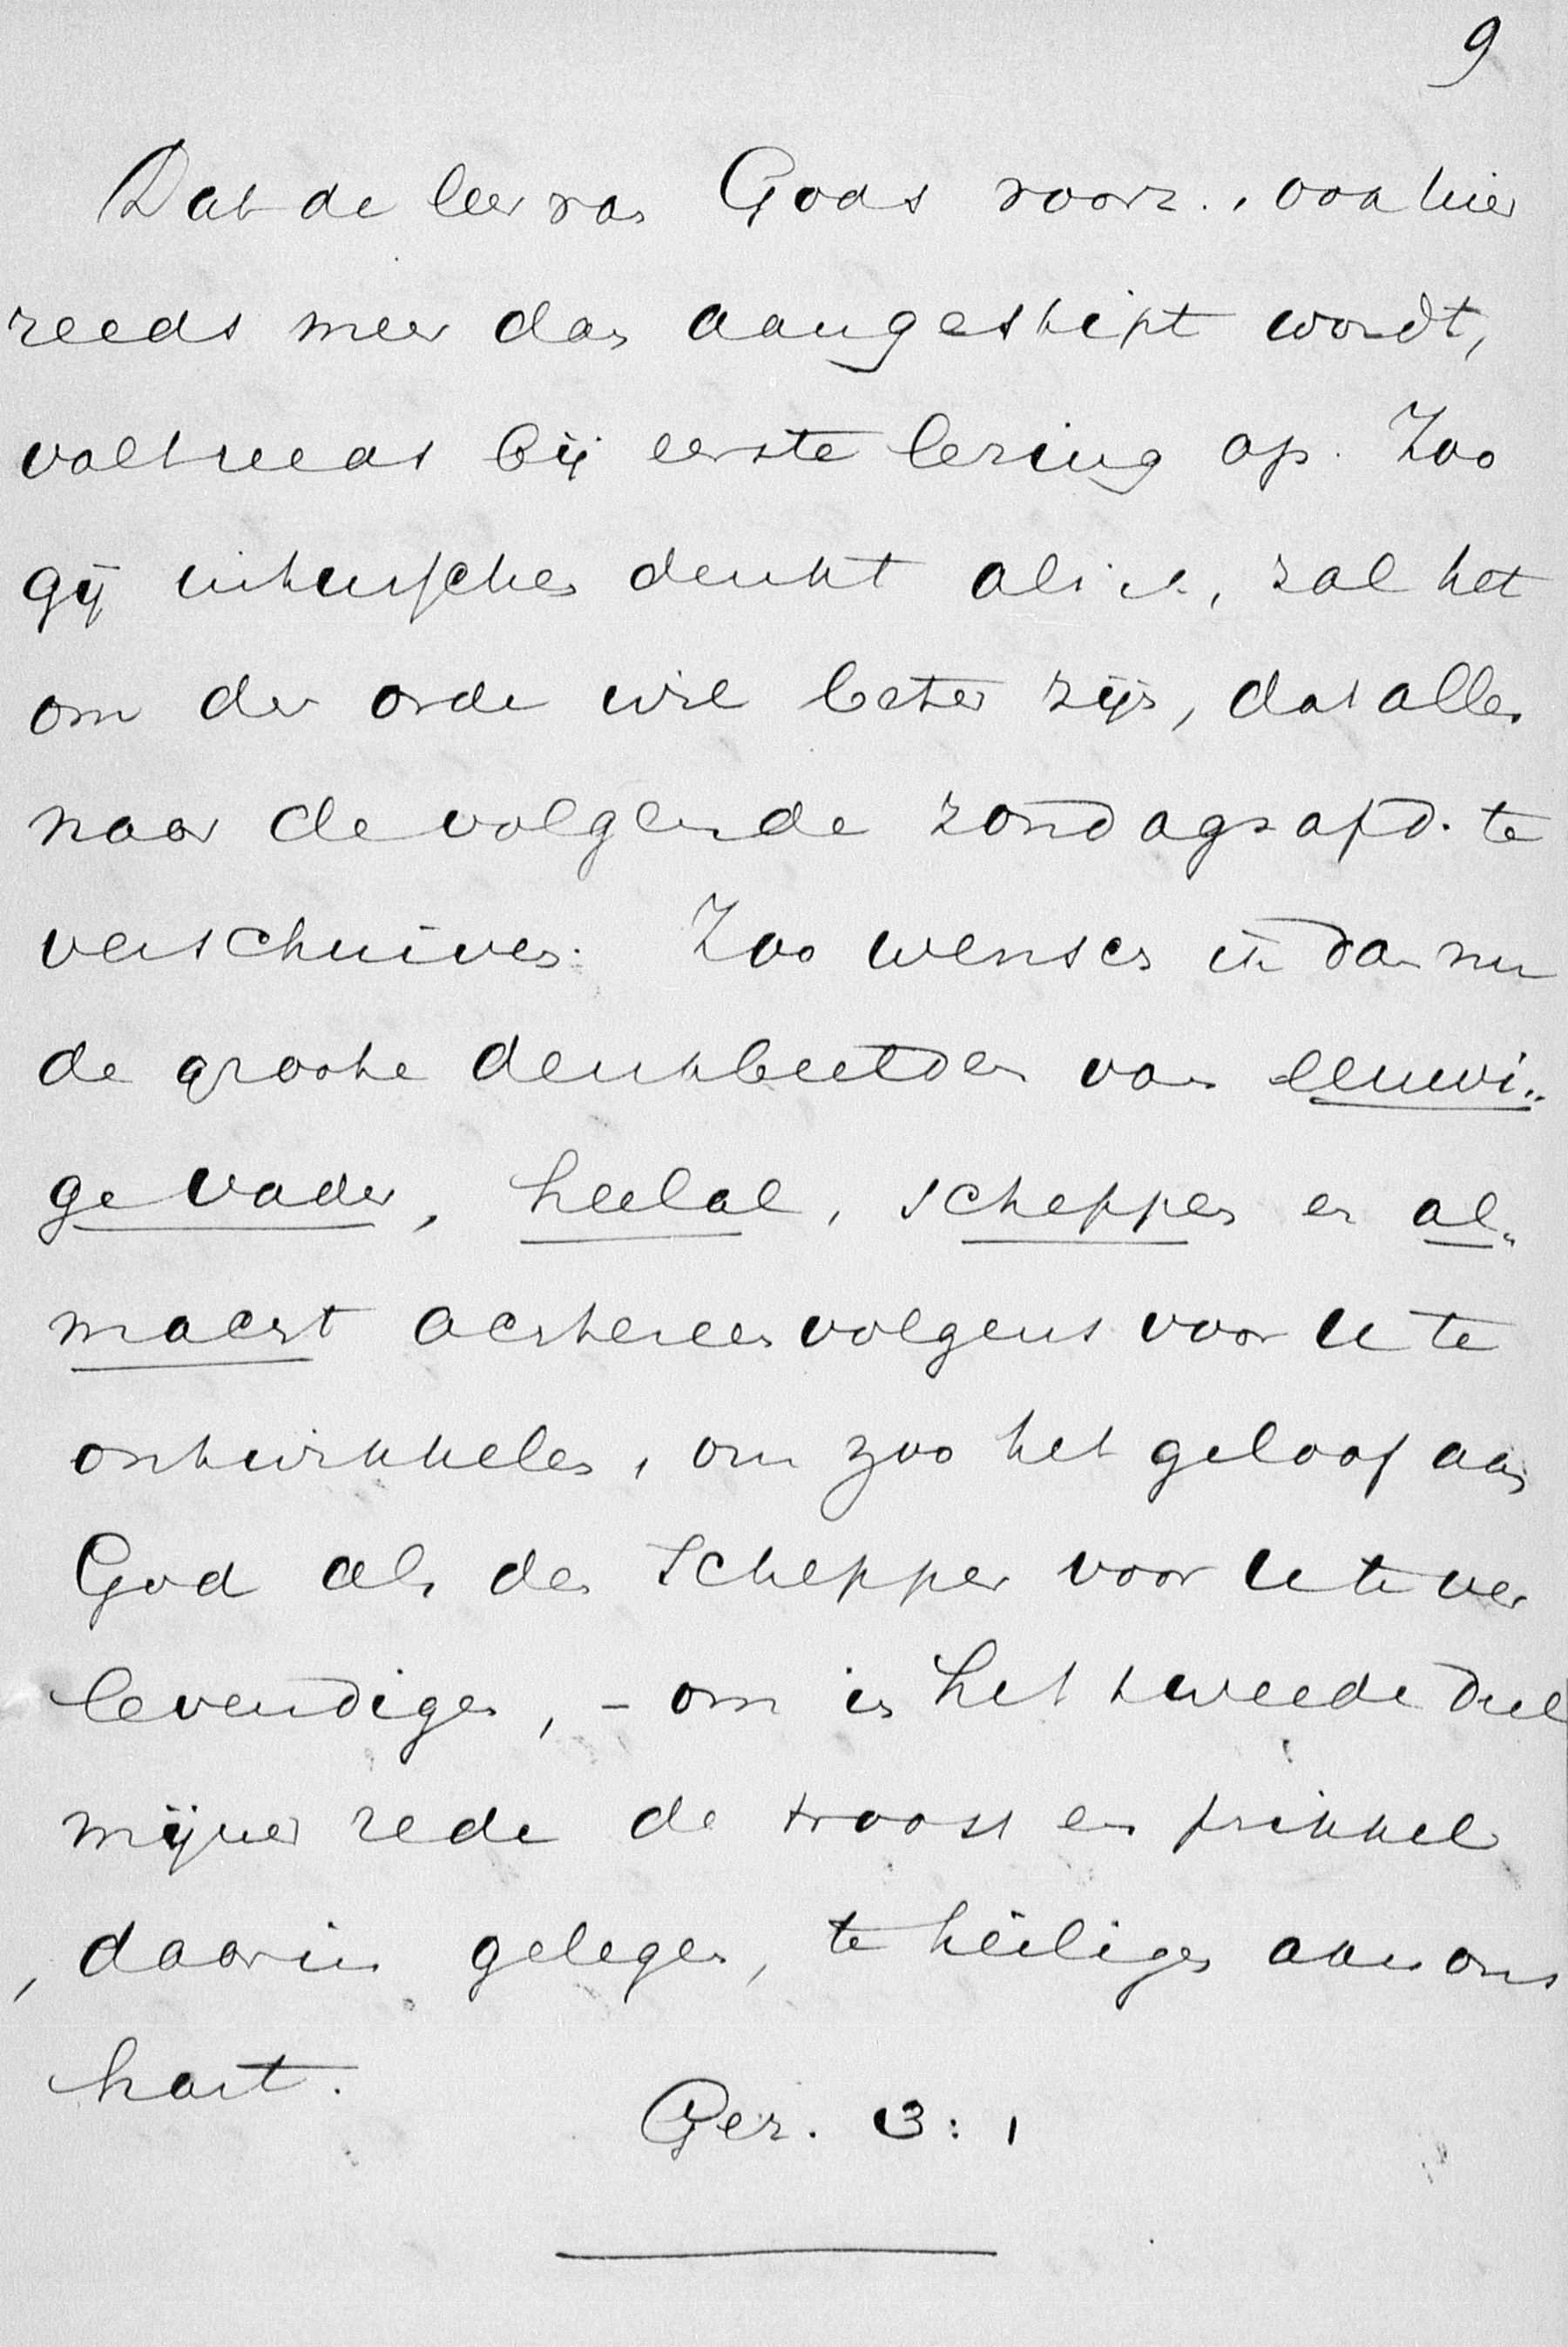 9
Dat de leer van Gods voorz., ook hier
reeds meer dan aangestipt wordt,
valt reeds bij eerste lezing op. Zoo
gij intusschen denkt als ik, zal het
om der orde wil beter zijn, dat alles
naar de volgende zondagsafd. te
verschuiven. Zoo wensch ik dan nu
de groote denkbeelden van eeuwi„
ge Vader, heelal, scheppen en al„
macht achtereenvolgens voor U te
ontwikkelen, om zoo het geloof aan
God als den Schepper voor U te ver
levendigen, – om in het tweede deel
mijner rede de troost en prikkel
, daarin gelegen, te heiligen aan ons
hart.
Gez. 3 : 1